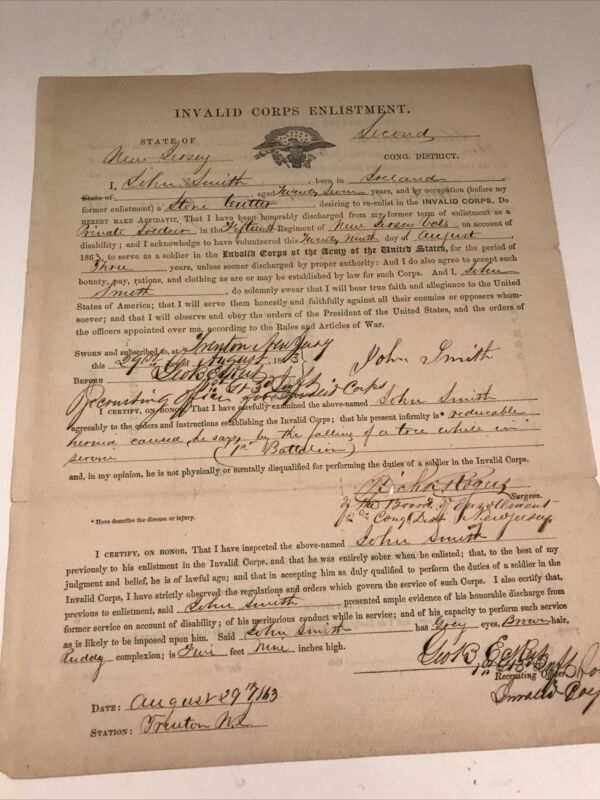 INVALID CORPS ENLISTMENT.
STATE OF
New Jersey
Second
CONG. DISTRICT.
I, John Smith, born in Ireland
State of, aged Twenty Seven years, and by occupation (before my
former enlistment) a Stone Cutter, desiring to re-enlist in the INVALID CORPS. Do
HEREBY MAKE AFFIDAVIT, That I have been honorably discharged from my former term of enlistment as a
Private Soldier in the Fifteenth Regiment of New Jersey Vols, on account of
disability; and I acknowledge to have volunteered this Twenty Ninth day of August
1863, to serve as a soldier in the Invalid Corps of the Army of the United States, for the period of
Three years, unless sooner discharged by proper authority: And I do also agree to accept such
bounty, pay, rations, and clothing as are or may be established by law for such Corps. And I, John
Smith, do solemnly swear that I will bear true faith and allegiance to the United
States of America; that I will serve them honestly and faithfully against all their enemies or opposers whom-
soever; and that I will observe and obey the orders of the President of the United States, and the orders of
the officers appointed over me, according to the Rules and Articles of War.
SWORN and subscribed to, at Trenton New Jersey
this 29th day of August, 1863
John Smith
BEFORE Geo B
Recruiting Officer for Invalid Corps
I CERTIFY, ON HONOR, That I have carefully examined the above-named John Smith
agreeably to the orders and instructions establishing the Invalid Corps; that his present infirmity is* reducable
hernia caused he says by the falling of a tree while in
service (1st Battalion)
and, in my opinion, he is not physically or mentally disqualified for performing the duties of a soldier in the Invalid Corps.
Surgeon.
of the Board of Enrolment
2d Cong Dist New Jersey
* Here describe the disease or injury.
I CERTIFY, ON HONOR, That I have inspected the above-named John Smith
previously to his enlistment in the Invalid Corps, and that he was entirely sober when he enlisted; that, to the best of my
judgment and belief, he is of lawful age; and that in accepting him as duly qualified to perform the duties of a soldier in the
Invalid Corps, I have strictly observed the regulations and orders which govern the service of such Corps. I also certify that,
previous to enlistment, said John Smith presented ample evidence of his honorable discharge from
former service on account of disability; of his meritorious conduct while in service; and of his capacity to perform such service
as is likely to be imposed upon him. Said John Smith has Grey eyes, Brown hair,
Ruddy complexion; is Five feet Nine inches high.
Geo B
Recruiting Officer
Invalid
DATE: August 29th/63
STATION: Trenton N.J.